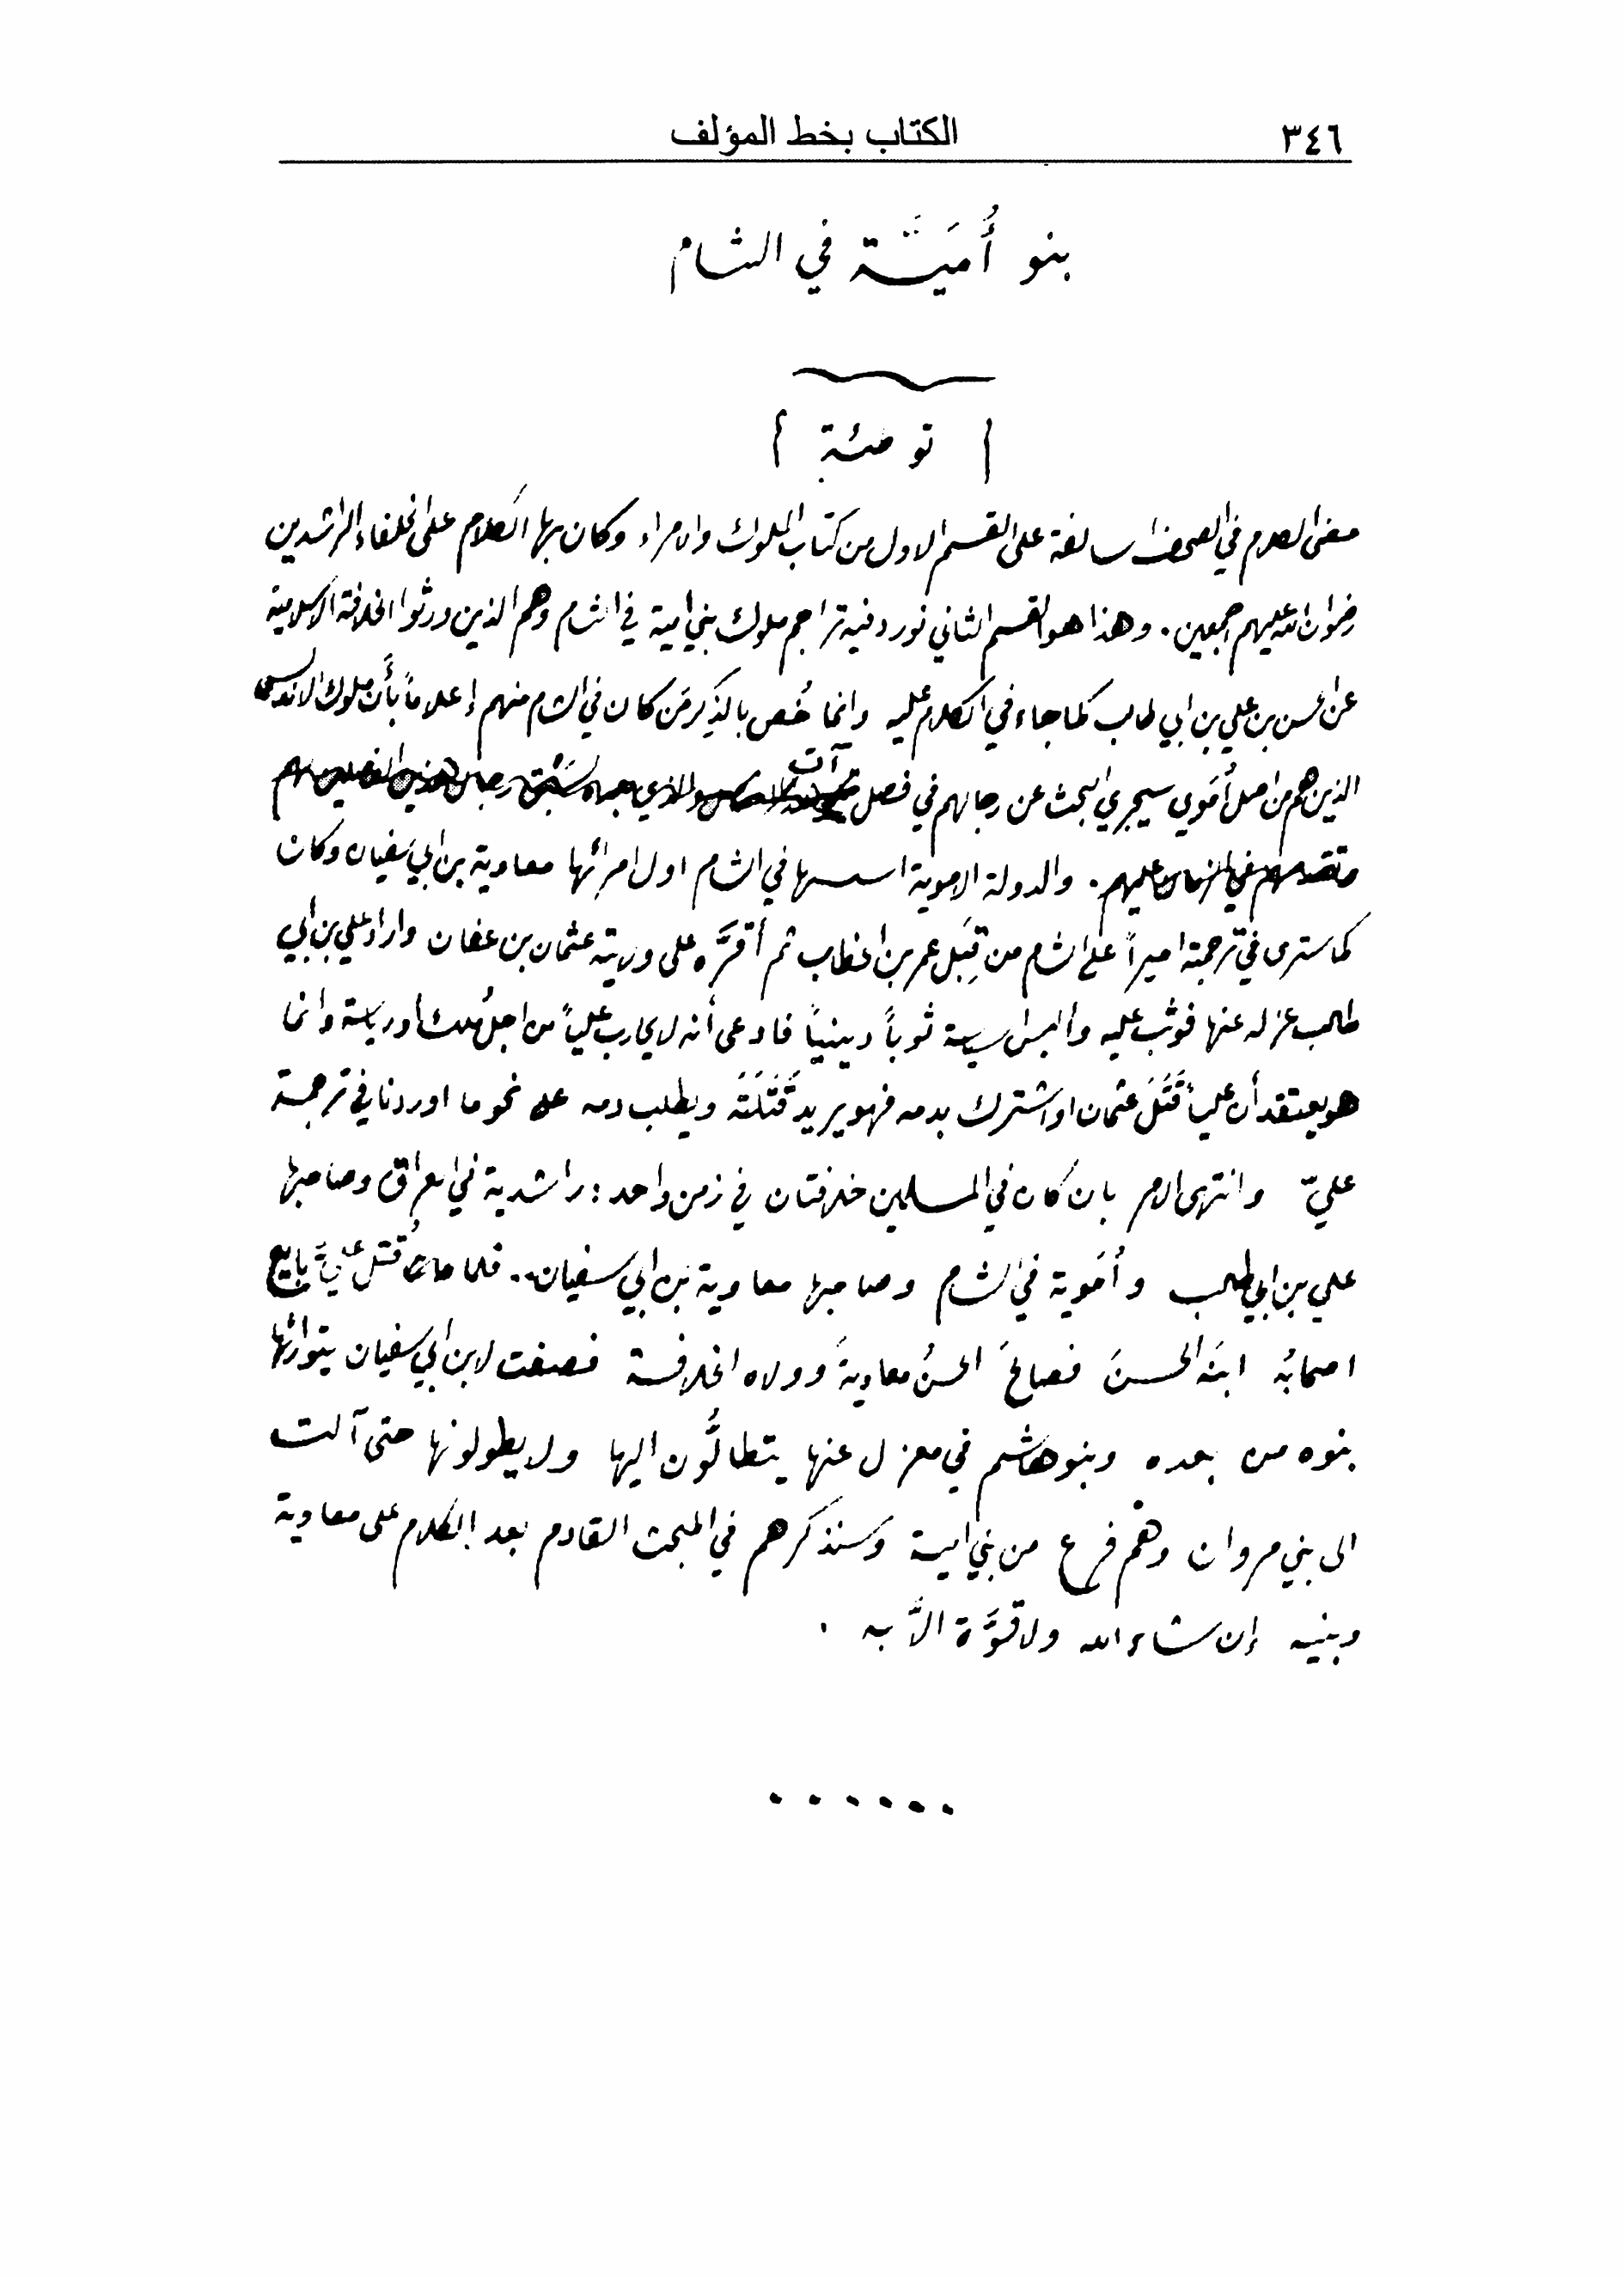 ٣٤٦
الكتاب بخط المؤلف
بنو أُمَيَّة في الشام
[ توطئة ]
مضى الكلام في الصحف السالفة على القسم الاول من كتاب الملوك والامراء وكان بها الكلام على الخلفاء الراشدين
رضوان الله عليهم اجمعين . وهذا هو القسم الثاني نورد فيه تراجم ملوك بني امية في الشام وهم الذين ورثوا الخلافة الاسلامية
عن الحسن بن علي بن ابي طالب كما جاء في الكلام عليه وانما خُص بالذِكر مَن كان في الشام منهم إعلاماً بأن ملوك الاندلس
الذين هم من اصل أُمَوي سيجري البحث عن رجالهم في فصل آت
وتقدمهم في الزمان عليهم . والدولة الاموية اسسها في الشام اول امرائها معاوية بن ابي سفيان وكان
كما سترى في ترجمته اميراً على الشام من قِبَل عمر بن الخطاب ثم أقرَّه على ولايته عثمان بن عفان واراد علي بن ابي
طالب عزله عنها فوثب عليه وألبس السياسة ثوباً دينياً فادعى أنه لا يحارب علياً من اجل مُلك او رياسة وانما
هو يعتقد أن علياً قَتَلَ عثمان او اشترك بدمه فهو يريد قَتَلَتَه ويطلب دمه على نحو ما اوردنا في ترجمة
عليّ وانتهى الامر بان كان في المسلمين خلافتان في زمن واحد : راشدية في العراق وصاحبها
علي بن ابي طالب وأُمَوية في الشام وصاحبها معاوية بن ابي سفيان . فلما مات قُتل عليٌّ بايع
اصحابُه ابنَه الحسنَ فصالحَ الحسنُ معاويةَ وولاه الخلافة فصفت لابن ابي سفيان يتوارثها
بنوه من بعده وبنو هاشم في معزل عنها يتطالُّون اليها ولا يطولونها حتى آلت
الى بني مروان وهم فرع من بني امية وسنذكرهم في المبحث القادم بعد الكلام على معاوية
وبنيه إن شاء الله ولا قوَّة الاَّ به .